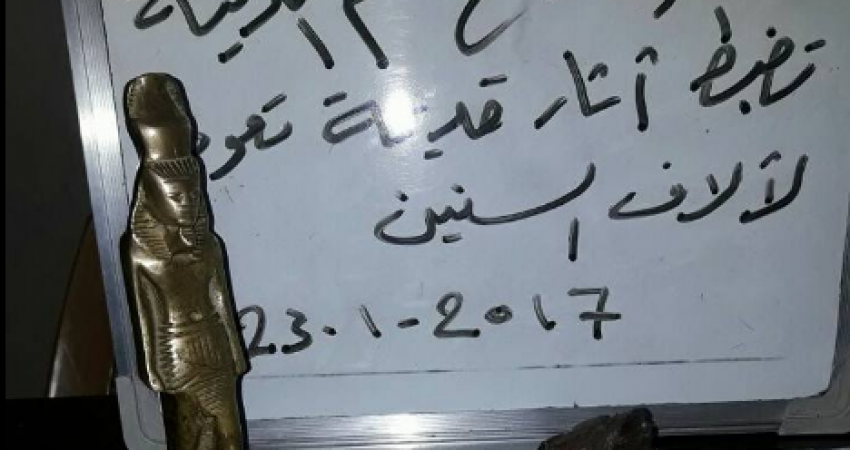 تضبط آثار قديمة تعود
لآلاف السنين
23.1-2017